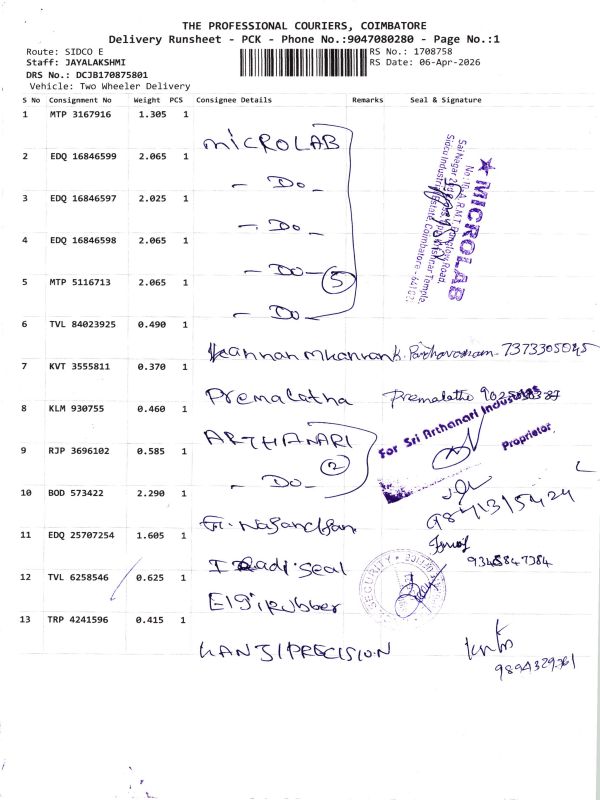 THE PROFESSIONAL COURIERS, COIMBATORE
Delivery Runsheet - PCK - Phone No.:9047080280 - Page No.:1
Route: SIDCO E
Staff: JAYALAKSHMI
DRS No.: DCJB170875801
Vehicle: Two Wheeler Delivery
RS No.: 1708758
RS Date: 06-Apr-2026
S No Consignment No Weight PCS Consignee Details Remarks Seal & Signature
1 MTP 3167916 1.305 1
MICROLAB
2 EDQ 16846599 2.065 1
- Do -
3 EDQ 16846597 2.025 1
- Do -
4 EDQ 16846598 2.065 1
- Do - 5
5 MTP 5116713 2.065 1
- Do -
★ MICROLAB
Sidco Industrial Estate, Coimbatore
6 TVL 84023925 0.490 1
Kannan Mkannan 7373305045
7 KVT 3555811 0.370 1
Premalatha Premalatha
8 KLM 930755 0.460 1
ARTHANARI
For Sri Arthanari Industries
Proprietor
9 RJP 3696102 0.585 1
2
- Do -
10 BOD 573422 2.290 1
9841315424
11 EDQ 25707254 1.605 1
seal
9345847384
12 TVL 6258546 0.625 1
Elgi Rubber
SECURITY
13 TRP 4241596 0.415 1
PRECISION